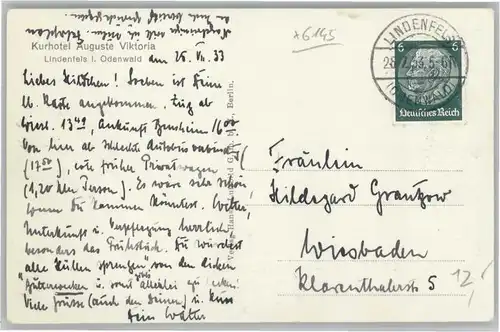 Kurhotel Auguste Viktoria
Lindenfels i. Odenwald
am 25. VII. 33
Liebes Hildchen! Soeben ist Deine
lb. Karte angekommen. Zug ab
Wiesb. 13 49, Ankunft Bensheim 16 00
Von hier ab schlechte Autobusverbind.
(17 50), früher Privatwagen
(1,20 Person). Es wäre sehr schön,
wenn Du kommen könntest. Wetter,
Unterkunft u. Verpflegung herrlich
besonders das Frühstück. Du würdest
alle Hüllen sprengen von den dicken
u. sonst allerlei
Viele Grüsse (auch den Deinen) u. Kuss
Dein Walter
+6145
LINDENFELS
(ODENWALD)
6 6
Deutsches Reich
Fräulein
Hildegard Grantzow
Wiesbaden
Klarenthalerstr 5
12,